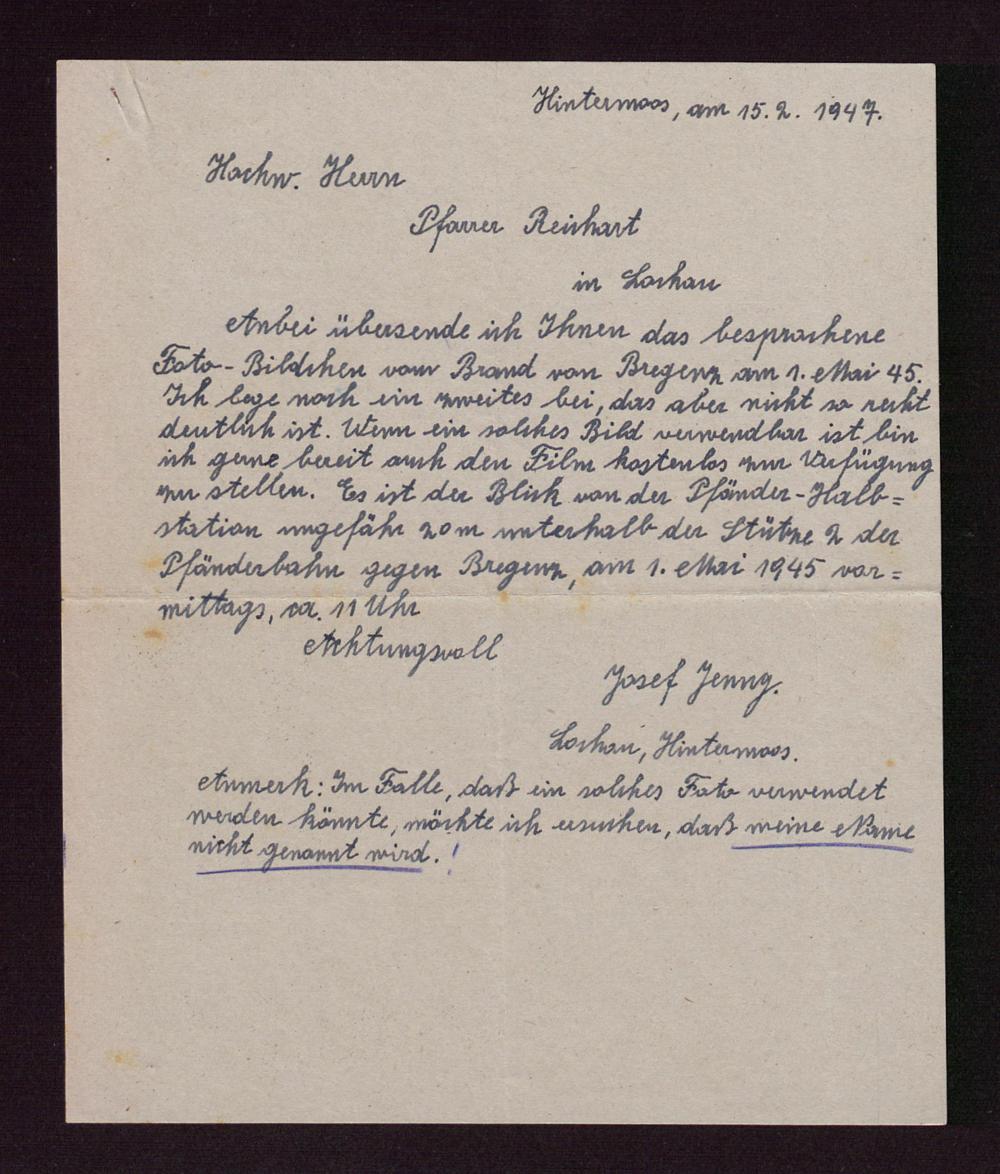 Hintermoos, am 15.2. 1947.
Hochw. Herrn
Pfarrer Reichart
in Lochau
Anbei übersende ich Ihnen das besprochene
Foto-Bildchen vom Brand von Bregenz am 1. Mai 45.
Ich lege noch ein zweites bei, das aber nicht so recht
deutlich ist. Wenn ein solches Bild verwendbar ist bin
ich gerne bereit auch den Film kostenlos zur Verfügung
zu stellen. Es ist der Blick von der Pfänder-Halb=
station ungefähr 20m unterhalb der Stütze 2 der
Pfänderbahn gegen Bregenz, am 1. Mai 1945 vor=
mittags, ca. 11 Uhr
Achtungsvoll
Josef Jenny.
Lochau, Hintermoos.
Anmerk: Im Falle, daß ein solches Foto verwendet
werden könnte, möchte ich ersuchen, daß meine Name
nicht genannt wird. !